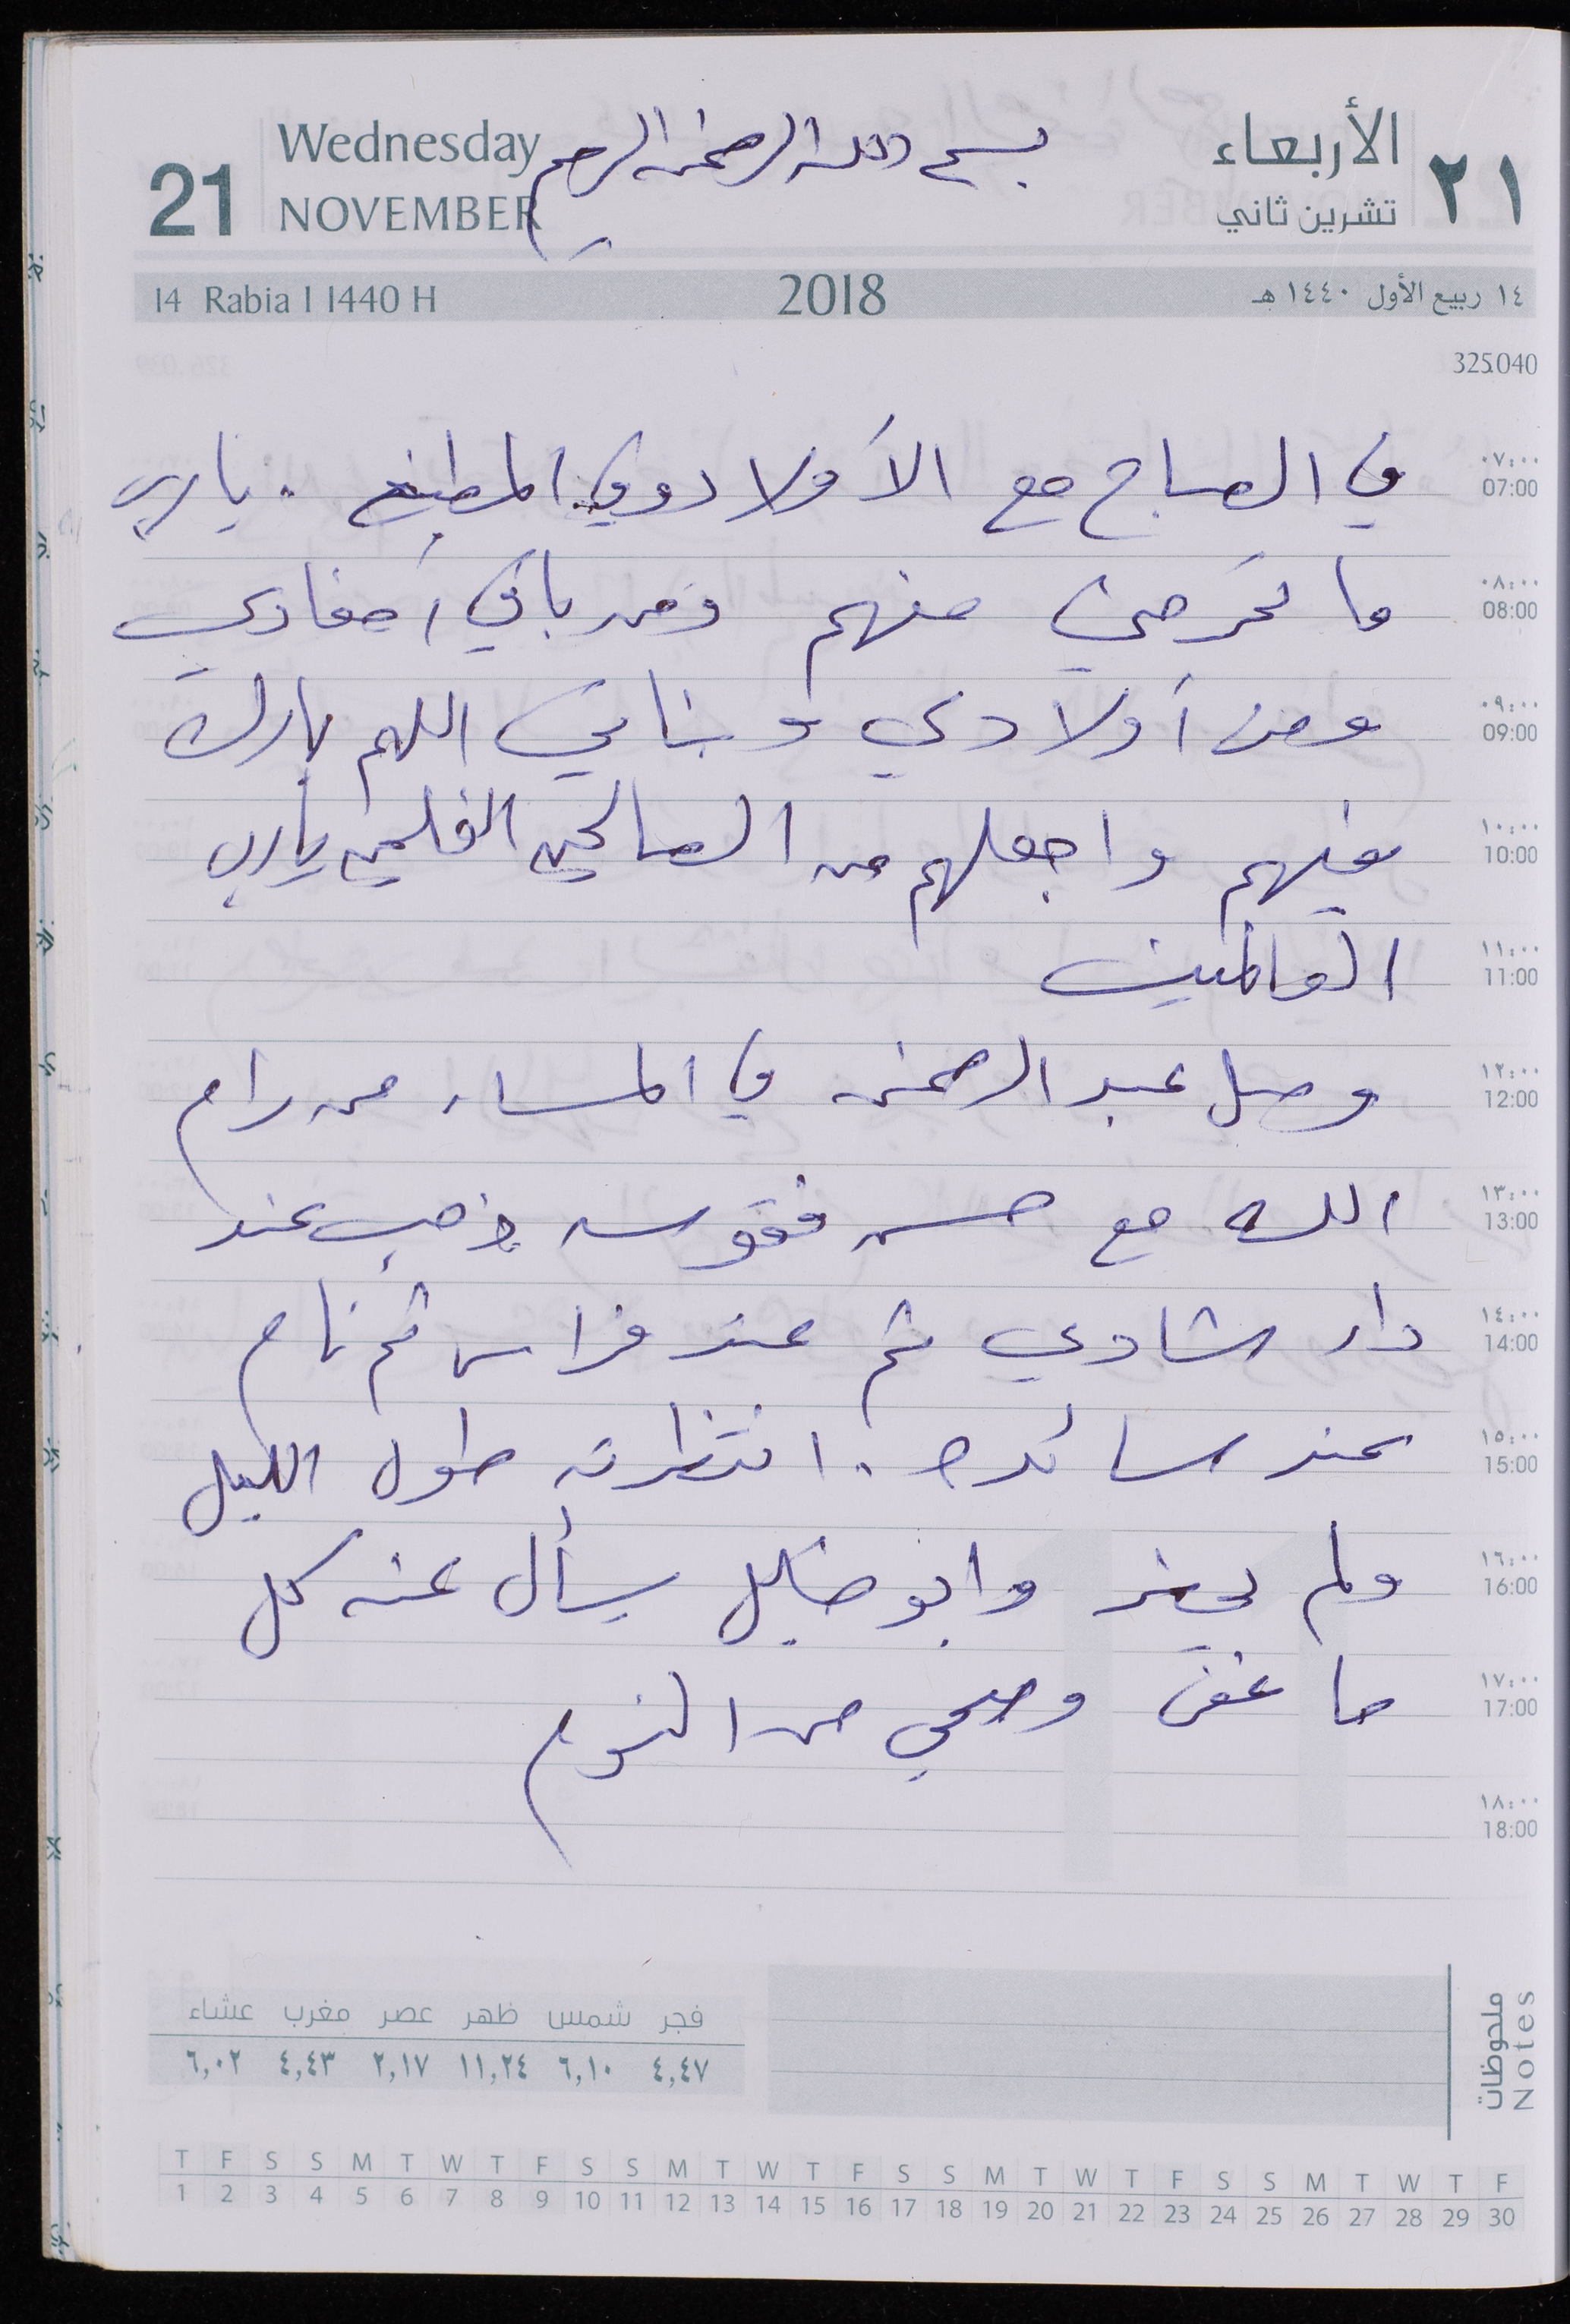 Wednesday بسم الله الرحمن الرحيم الأربعاء
21 NOVEMBER تشرين ثاني ٢١
14 Rabia I 1440 H 2018 ١٤ ربيع الأول ١٤٤٠ هـ
325.040
٠٧:٠٠
07:00
في الصباح مع الأولاد وفي المطبخ . يا رب
٠٨:٠٠
08:00
ما تحرمني منهم ومن باقي أحفادي
٠٩:٠٠
09:00
ومن أولادي وبناتي اللهم بارك
١٠:٠٠
10:00
فيهم واجعلهم من الصالحين يا رب
١١:٠٠
11:00
العالمين
١٢:٠٠
12:00
وصل عبد الرحمن في المساء من رام
١٣:٠٠
13:00
الله مع حسن فقوسه ذهب عند
١٤:٠٠
14:00
دار شادي ثم عند فراس ثم نام
١٥:٠٠
15:00
عند سائده . انتظرته طول الليل
١٦:٠٠
16:00
ولم وابو خليل يسأل عنه كل
١٧:٠٠
17:00
ما غفى وصحي من النوم
١٨:٠٠
18:00
ملحوظات
Notes
فجر شمس ظهر عصر مغرب عشاء
٤,٤٧ ٦,١٠ ١١,٢٤ ٢,١٧ ٤,٤٣ ٦,٠٢
T F S S M T W T F S S M T W T F S S M T W T F S S M T W T F
1 2 3 4 5 6 7 8 9 10 11 12 13 14 15 16 17 18 19 20 21 22 23 24 25 26 27 28 29 30